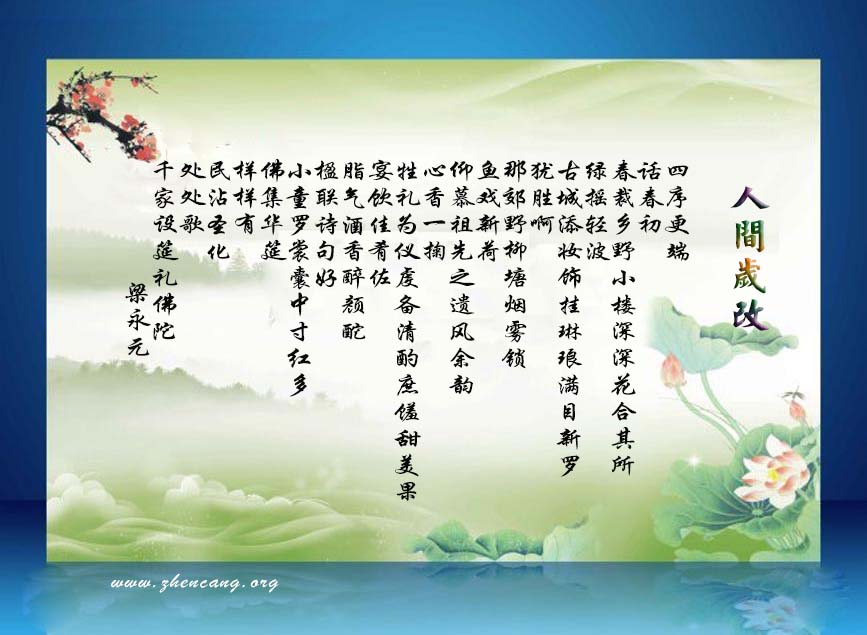 人間歲改
四序更端
话春初
春裁乡野小楼深深花合其所
绿摇轻波
古城添妆饰挂琳琅满目新罗
犹胜啊
那郊野柳塘烟雾锁
鱼戏新荷
仰慕祖先之遗风余韵
心香一掬
牲礼为仪虔备清酌庶馐甜美果
宴饮佳肴佐
脂气酒香醉颜酡
楹联诗句好
小童罗裳囊中寸红多
佛集华筵
样样有
民沾圣化
处处歌
千家设筵礼佛陀
梁永元
www.zhencang.org